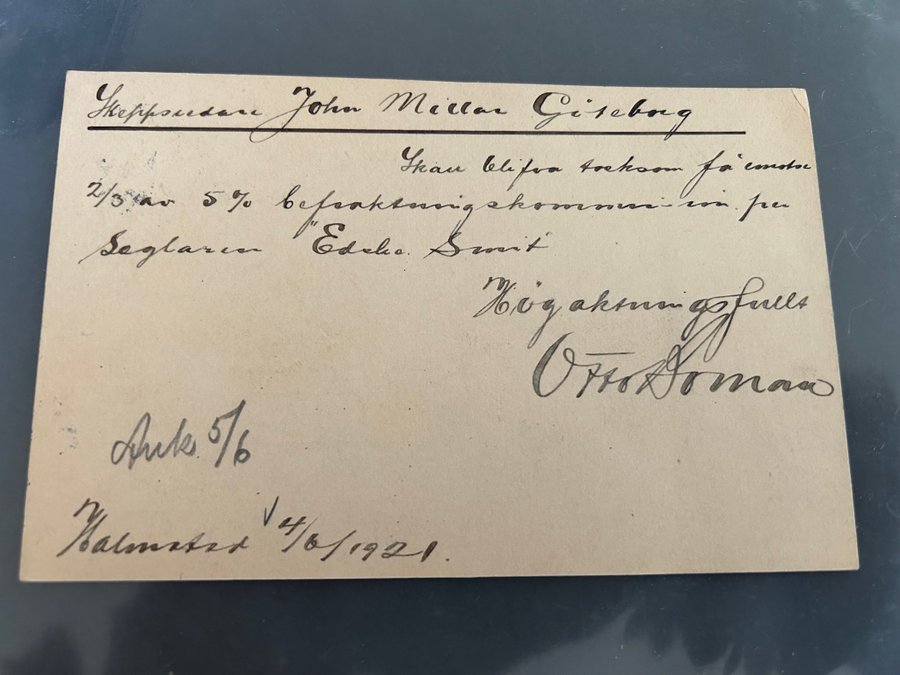 Skeppsredare John Millar Göteborg
Skall blifva tacksam få emotse
2/3 av 5% befraktningskommission per
Seglaren "Edske Smit"
Högaktningsfullt
Otto Boman
Ank. 5/6
Halmstad 4/6/1921.